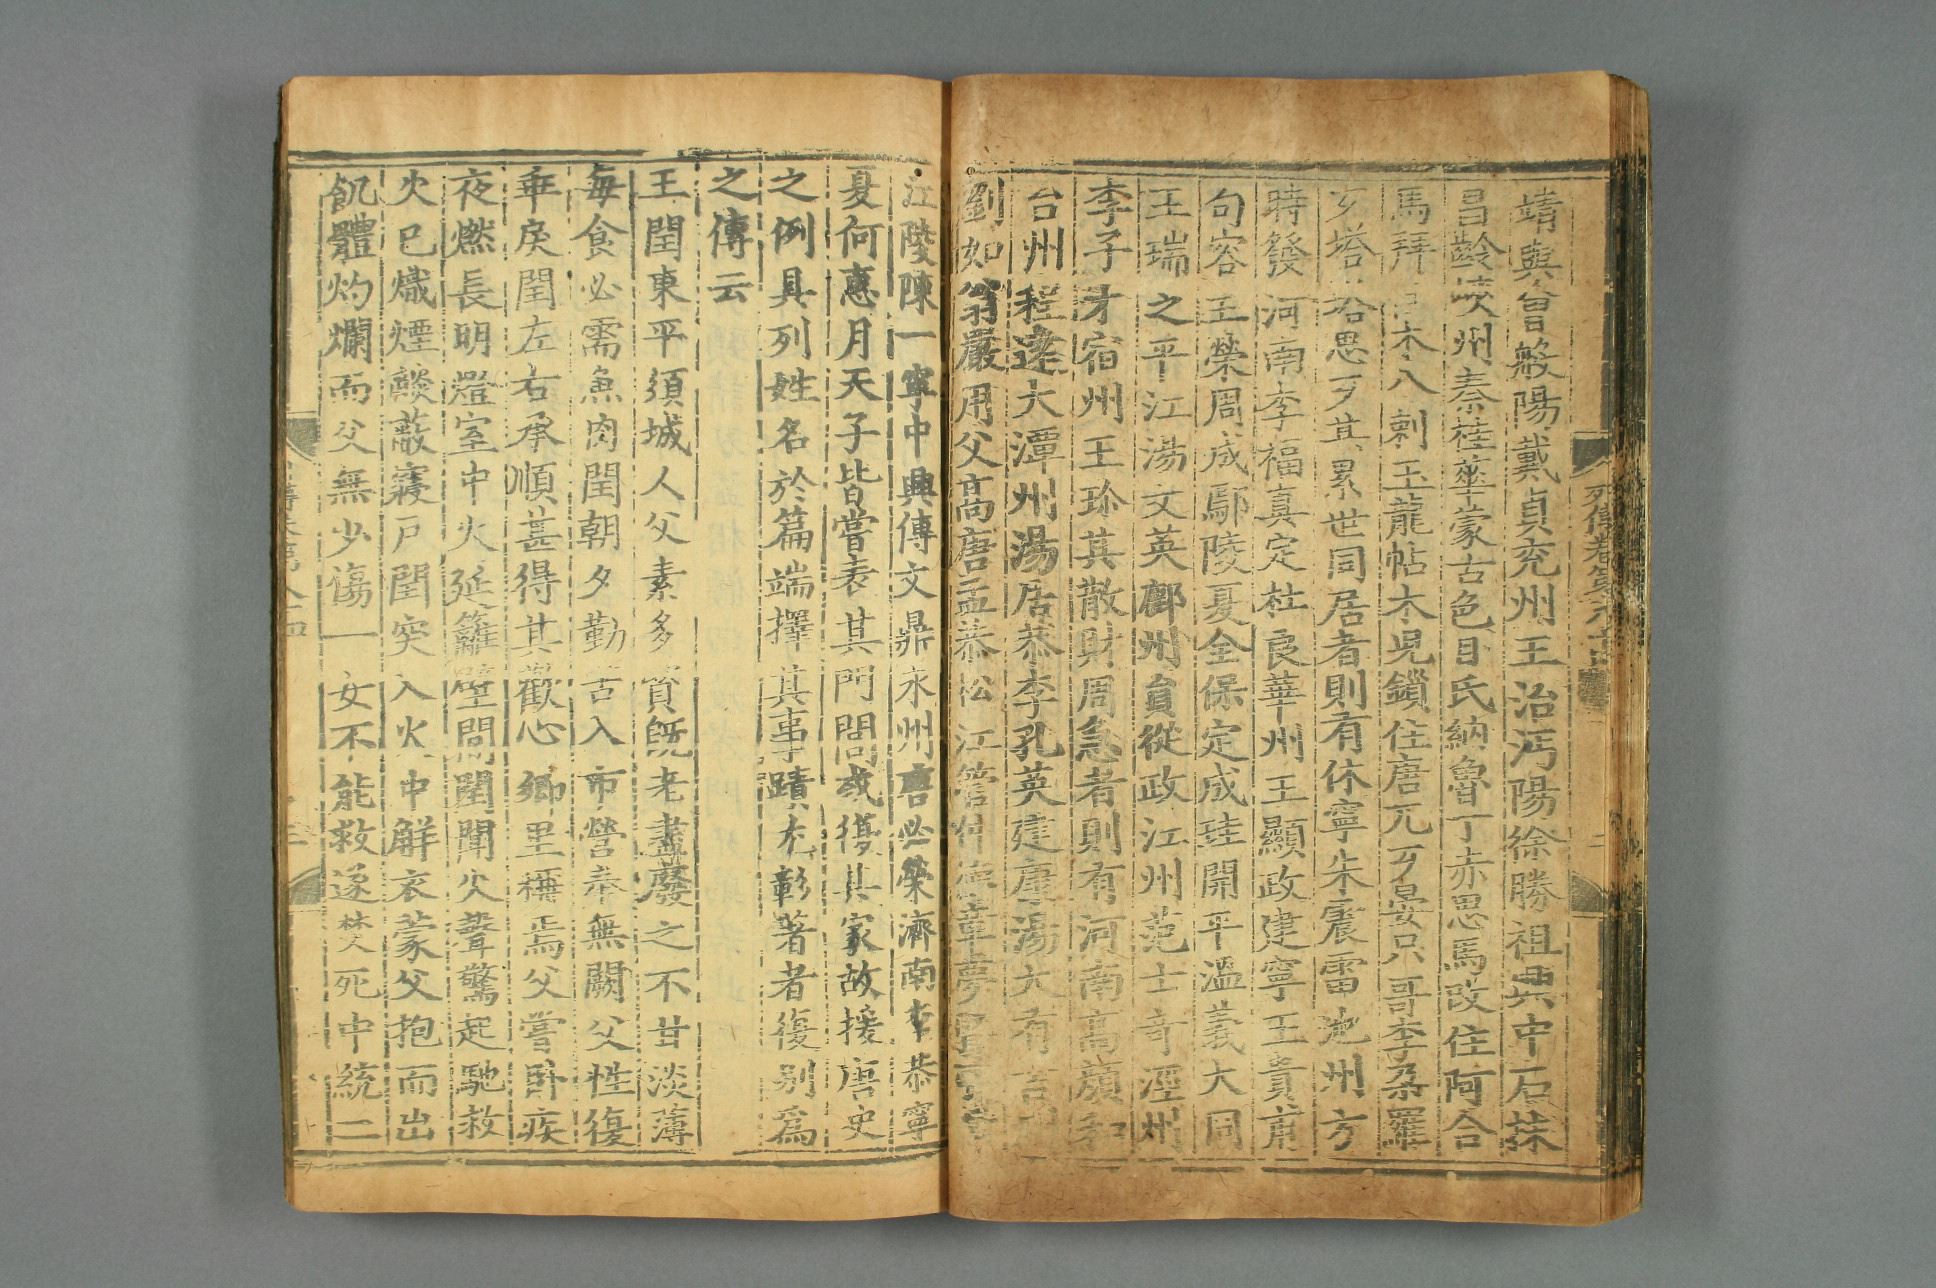 靖與曾般陽戴貞兖州王治沔陽徐勝祖興中石抹
昌齡峽州秦桂華蒙古色目氏納魯丁赤思馬改住阿合
馬拜 木八剌玉龍帖木兒鎖住唐兀歹晏只哥李朶羅
歹塔塔思歹其累世同居者則有休寧朱震雷池州方
時發河南李福真定杜良華州王顯政建寧王貴甫
句容王榮周成鄢陵夏全保定成珪開平溫義大同
王瑞之平江湯文英鄜州貟從政江州范士奇涇州
李子才宿州王珍其散財周急者則有河南高顔和
台州程遠大潭州湯居恭李孔英建康湯大有吉
劉如翁嚴用父高唐孟恭松江管仲德章夢賢
江陵陳一寧中興傅文鼎永州唐必榮濟南李恭寧
夏何惠月天子皆嘗表其門閭或復其家故援唐史
之例具列姓名於篇端擇其事蹟尤彰著者復别爲
之傳云
王閏東平須城人父素多貲既老盡廢之不甘淡薄
每食必需魚肉閏朝夕勤苦入市營奉無闕父性復
乖戾閏左右承順甚得其歡心鄉里稱焉父嘗卧疾
夜燃長明燈室中火延籬壁間閏聞火聲驚起馳救
火已熾煙燄蔽寢戸閏突入火中解衣蒙父抱而出
飢體灼爛而父無少傷一女不能救遂焚死中統二